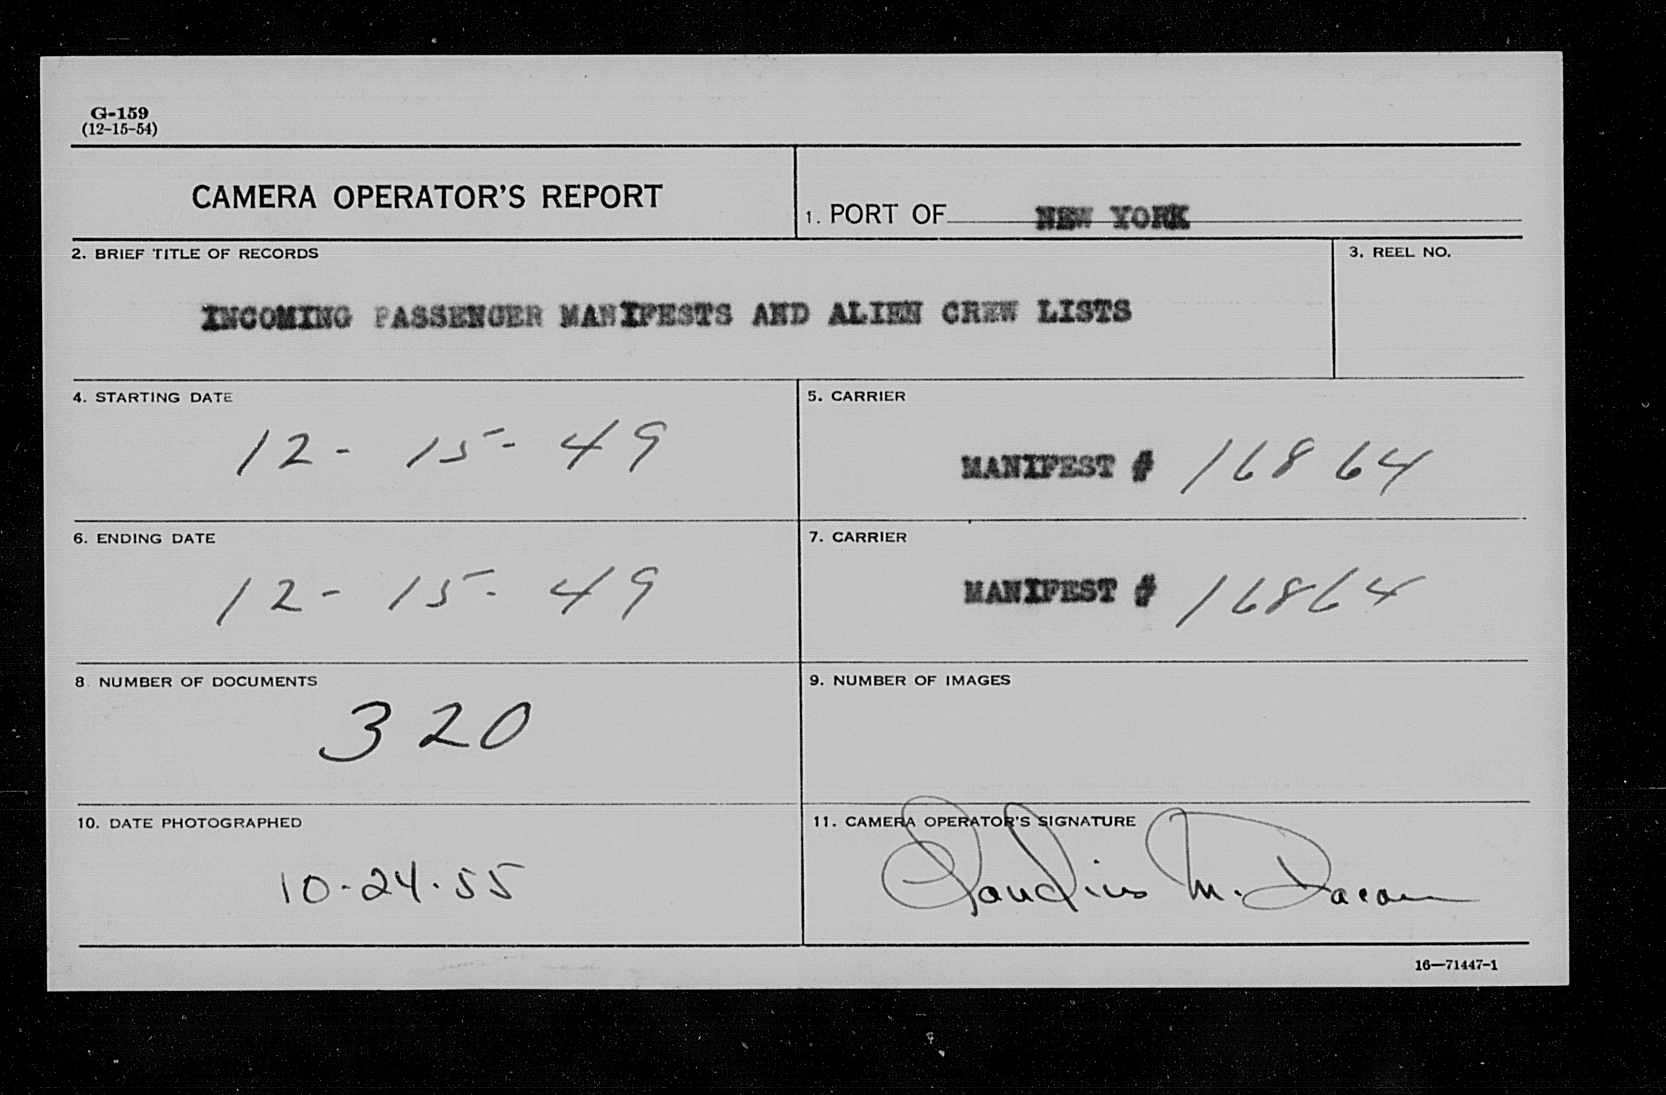 G-159
(12-15-54)
CAMERA OPERATOR'S REPORT
1. PORT OF NEW YORK
2. BRIEF TITLE OF RECORDS
3. REEL NO.
INCOMING PASSENGER MANIFESTS AND ALIEN CREW LISTS
4. STARTING DATE
12-15-49
5. CARRIER
MANIFEST # 16864
6. ENDING DATE
12-15-49
7. CARRIER
MANIFEST # 16864
8 NUMBER OF DOCUMENTS
320
9. NUMBER OF IMAGES
10. DATE PHOTOGRAPHED
10-24-55
11. CAMERA OPERATOR'S SIGNATURE
Claudius M.
16—71447-1